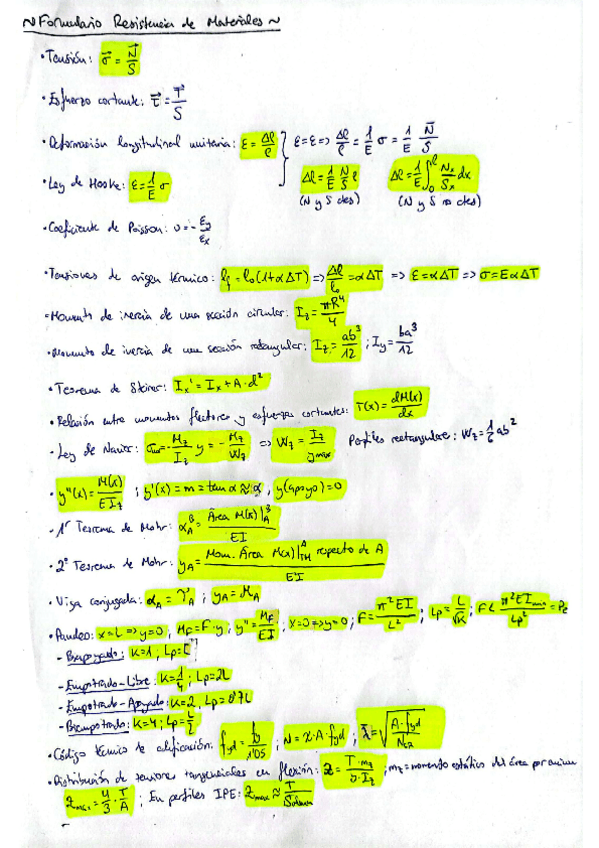 ~ Formulario Resistencia de Materiales ~
• Tensión: σ⃗ = N⃗/S
• Esfuerzo cortante: τ⃗ = T⃗/S
• Deformación longitudinal unitaria: ε = Δl/l } ε = ε => Δl/l = 1/E σ = 1/E N⃗/S
• Ley de Hooke: ε = 1/E σ Δl = 1/E N/S l (N y S ctes) Δl = 1/E ∫₀ˡ Nx/Sx dx (N y S no ctes)
• Coeficiente de Poisson: υ = - εy/εx
• Tensiones de origen térmico: lf = l₀(1+αΔT) => Δl/l₀ = αΔT => ε = αΔT => σ = EαΔT
• Momento de inercia de una sección circular: Iz = πR⁴/4
• Momento de inercia de una sección rectangular: Iz = ab³/12 ; Iy = ba³/12
• Teorema de Steiner: Ix' = Ix + A·d²
• Relación entre momentos flectores y esfuerzos cortantes: T(x) = dM(x)/dx
• Ley de Navier: = - Mz/Iz y = - Mz/Wz => Wz = Iz/ymax Perfiles rectangulares: Wz = 1/6 ab²
• y''(x) = M(x)/EIz ; y'(x) = m = tan α ≈ α , y(apoyo) = 0
- 1º Teorema de Mohr: αAᴮ = Área M(x)|ᴮA / EI
• 2º Teorema de Mohr: yA = Mom. Área M(x)| respecto de A / EI
• Viga conjugada: αA = A ; yA = MA
• Pandeo: x=L => y=0 , MF = F·y , y'' = MF/EI ; x=0 => y=0 ; F = π²EI/L² ; Lp = L/√K ; F < π²EImin/Lp² = Pc
- Biapoyado: K=1 ; Lp=L
- Empotrado-Libre: K=1/4 ; Lp=2L
- Empotrado-Apoyado: K=2 , Lp=0'7L
- Biempotrado: K=4 ; Lp=L/2
• Código técnico de edificación: fyd = fy/1'05 ; N = χ·A·fyd ; λ̄ = √(A·fyd/Ncr)
• Distribución de tensiones tangenciales en flexión: = T·mz/b·Iz ; mz = momento estático del área por
max = 4/3 · T/A ; En perfiles IPE: max ≈ T/Salma